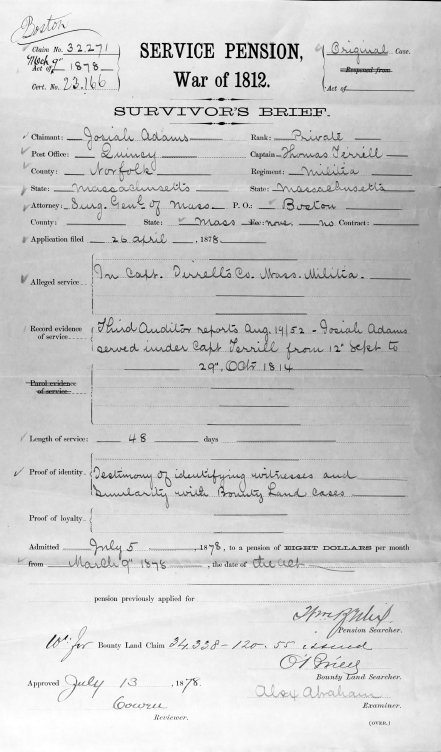 Boston
Claim No. 32,271
March 9"
Act of 1878
Cert. No. 23,166
SERVICE PENSION,
War of 1812.
Original Case.
Reopened from
Act of
SURVIVOR'S BRIEF.
Claimant: Josiah Adams Rank: Private
Post Office: Quincy Captain Thomas Terrill
County: Norfolk Regiment: Militia
State: Massachusetts State: Massachusetts
Attorney: Surg. Genl. of Mass. P. O.: Boston
County: State: Mass Fee: none. no Contract:
Application filed 26 april, 1878.
Alleged service In Capt. Dirrell's Co. Mass. Militia.
Record evidence of service. Third Auditor reports Aug. 19/52 - Josiah Adams
served under Capt Terrill from 12" Sept to
29". Oct. 1814
Parol evidence of service.
Length of service: 48 days
Proof of identity. Testimony of identifying witnesses and
similarity with Bounty Land cases
Proof of loyalty.
Admitted July 5, 1878, to a pension of EIGHT DOLLARS per month
from March 9" 1878, the date of the act
pension previously applied for
Pension Searcher.
Wt for Bounty Land Claim 34,338-120-55 issued
Bounty Land Searcher.
Approved July 13, 1878.
Alex Abraham
Examiner.
Cowen
Reviewer.
(OVER.)